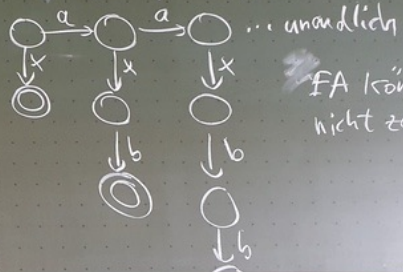 a a ... unendlich
x x x
FA kön
b b nicht z
b